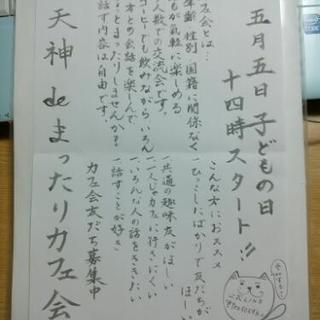 五月五日子どもの日
十四時スタート!!
こんな方におススメ
一、ひっこしたばかりで友だちが
ほしい
一、共通の趣味友がほしい
一、一人じゃカフェに行きにくい
一、いろんな人の話をききたい
一、話すことが好き
カフェ会友だち募集中
カフェ会とは…
年齢 性別 国籍に関係なく
誰もが気軽に楽しめる
少人数での交流会です。
コーヒーでも飲みながらいろんな
人とお会話を楽しんで
まったりしませんか?
話す内容は自由です。
天神deまったりカフェ会